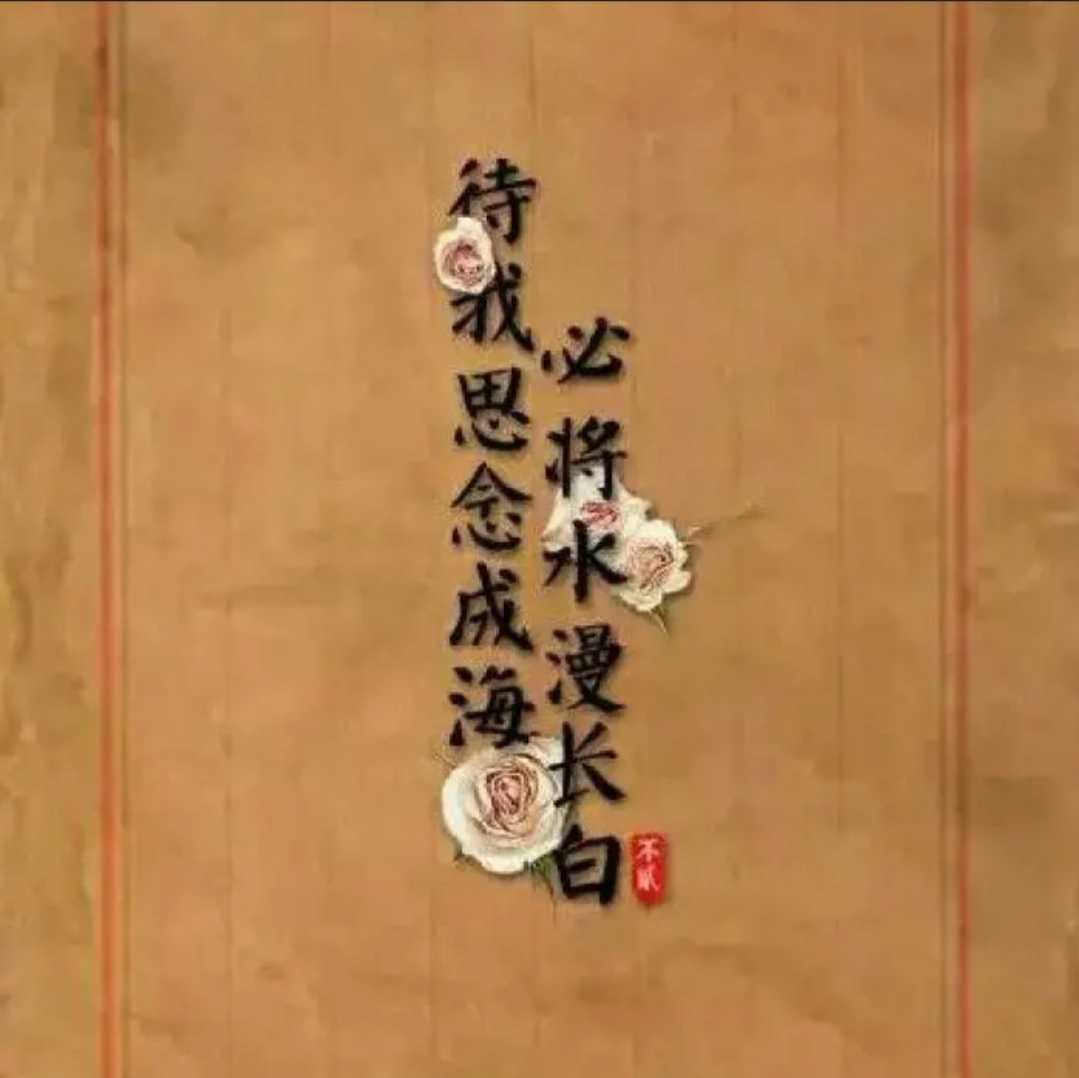 待我思念成海
必将水漫长白
不貳